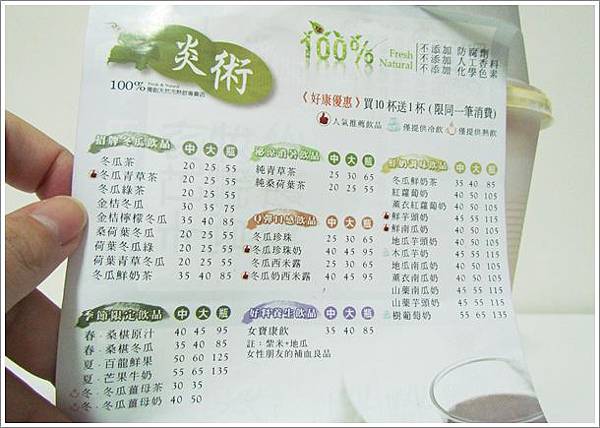 炎術
100%
Fresh & Natural
100% Fresh Natural
不添加 防腐劑
不添加 人工香料
不添加 化學色素
《好康優惠》買10杯送1杯(限同一筆消費)
人氣推薦飲品 僅提供冷飲 僅提供熱飲
招牌冬瓜飲品 中 大 瓶
冬瓜茶 20 25 55
冬瓜青草茶 20 25 55
冬瓜綠茶 20 25 55
金桔冬瓜 30 35 75
金桔檸檬冬瓜 35 40 85
桑荷葉冬瓜 20 25 55
荷葉冬瓜綠 20 25 55
荷葉青草冬瓜 20 25 55
冬瓜鮮奶茶 35 40 85
季節限定飲品 中 大 瓶
春.桑椹原汁 40 45 95
春.桑椹冬瓜 35 40 85
夏.百龍鮮果 50 60 125
夏.芒果牛奶 55 65 135
冬.冬瓜薑母茶 30 35
冬.冬瓜薑母奶 40 50
消暑飲品 中 大 瓶
純青草茶 25 30 65
純桑荷葉茶 20 25 55
口感飲品 中 大 瓶
冬瓜珍珠 25 30 65
冬瓜珍珠奶 40 45 95
冬瓜西米露 25 30 65
冬瓜奶西米露 40 45 95
好料養生飲品 中 大 瓶
女寶康飲 35 40 85
註：紫米+地瓜
女性朋友的補血良品
鮮奶調味飲品 中 大 瓶
冬瓜鮮奶茶 35 40 85
紅蘿蔔奶 40 45 95
薏衣紅蘿蔔奶 40 45 95
鮮芋頭奶 45 55 115
鮮南瓜奶 45 55 115
地瓜芋頭奶 40 45 95
木瓜芋奶 45 55 115
地瓜南瓜奶 40 45 95
薏衣南瓜奶 40 45 95
山藥南瓜奶 45 55 115
山藥芋頭奶 45 55 115
樹葡萄奶 55 65 135